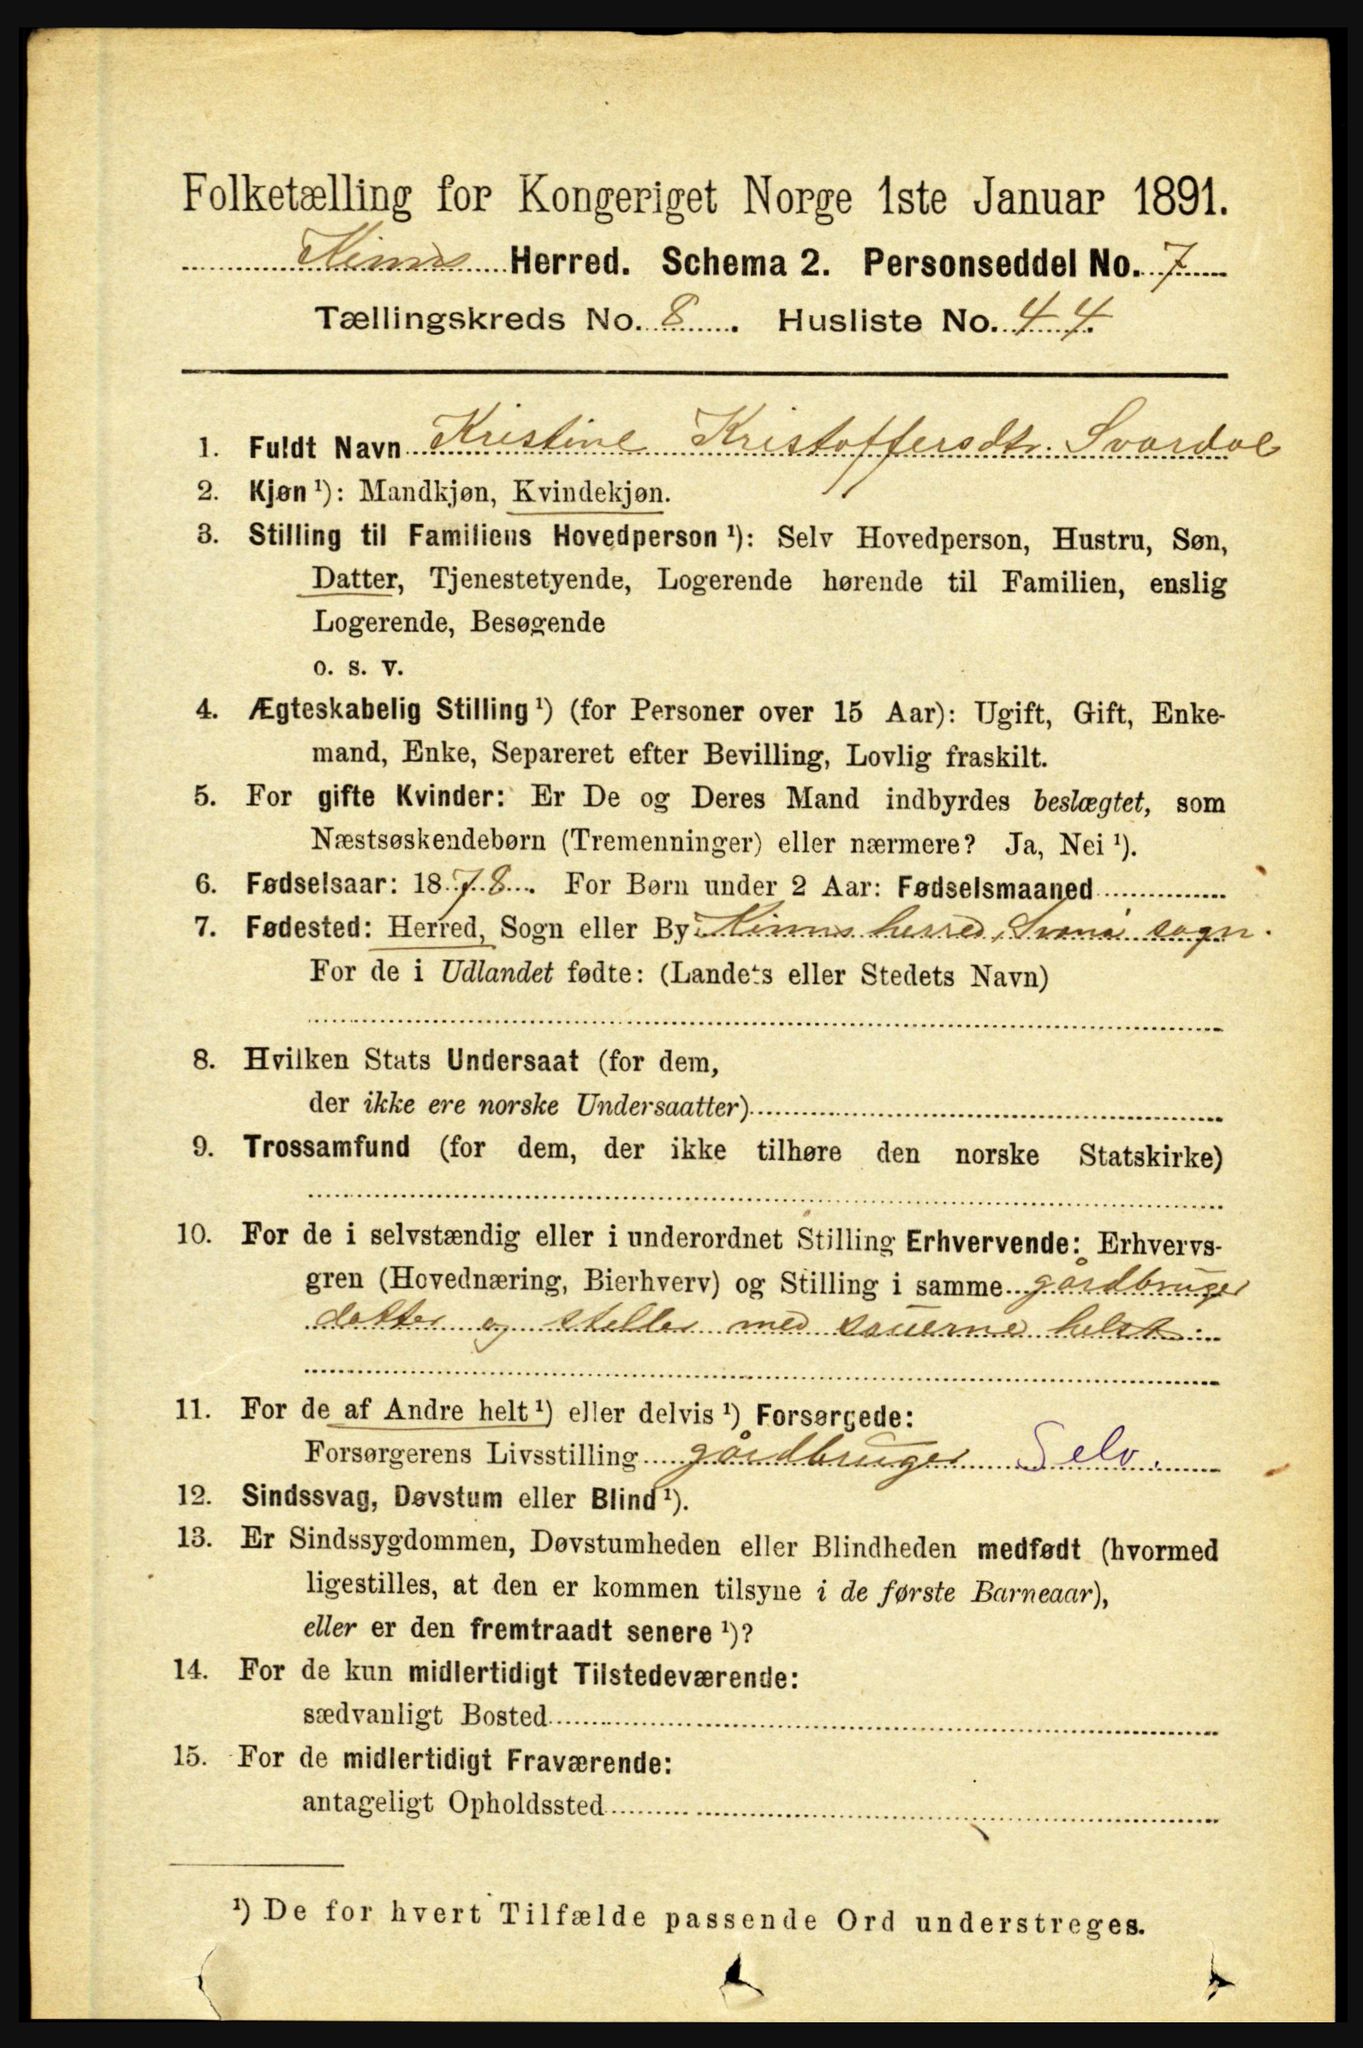 Folketælling for Kongeriget Norge 1ste Januar 1891.
Kinns Herred. Schema 2. Personseddel No. 7
Tællingskreds No. 8. Husliste No. 44.
1. Fuldt Navn Kristine Kristoffersdtr. Svardal
2. Kjøn ¹): Mandkjøn, Kvindekjøn.
3. Stilling til Familiens Hovedperson ¹): Selv Hovedperson, Hustru, Søn,
Datter, Tjenestetyende, Logerende hørende til Familien, enslig
Logerende, Besøgende
o. s. v.
4. Ægteskabelig Stilling ¹) (for Personer over 15 Aar): Ugift, Gift, Enke-
mand, Enke, Separeret efter Bevilling, Lovlig fraskilt.
5. For gifte Kvinder: Er De og Deres Mand indbyrdes beslægtet, som
Næstsøskendebørn (Tremenninger) eller nærmere? Ja, Nei ¹).
6. Fødselsaar: 1878. For Børn under 2 Aar: Fødselsmaaned
7. Fødested: Herred, Sogn eller By Kinns herred, Svanø sogn.
For de i Udlandet fødte: (Landets eller Stedets Navn)
8. Hvilken Stats Undersaat (for dem,
der ikke ere norske Undersaatter)
9. Trossamfund (for dem, der ikke tilhøre den norske Statskirke)
10. For de i selvstændig eller i underordnet Stilling Erhvervende: Erhvervs-
gren (Hovednæring, Bierhverv) og Stilling i samme gårdbruger
datter og steller med sauerne helst.
11. For de af Andre helt ¹) eller delvis ¹) Forsørgede:
Forsørgerens Livsstilling gårdbruger Selv.
12. Sindssvag, Døvstum eller Blind ¹).
13. Er Sindssygdommen, Døvstumheden eller Blindheden medfødt (hvormed
ligestilles, at den er kommen tilsyne i de første Barneaar),
eller er den fremtraadt senere ¹)?
14. For de kun midlertidigt Tilstedeværende:
sædvanligt Bosted
15. For de midlertidigt Fraværende:
antageligt Opholdssted
¹) De for hvert Tilfælde passende Ord understreges.